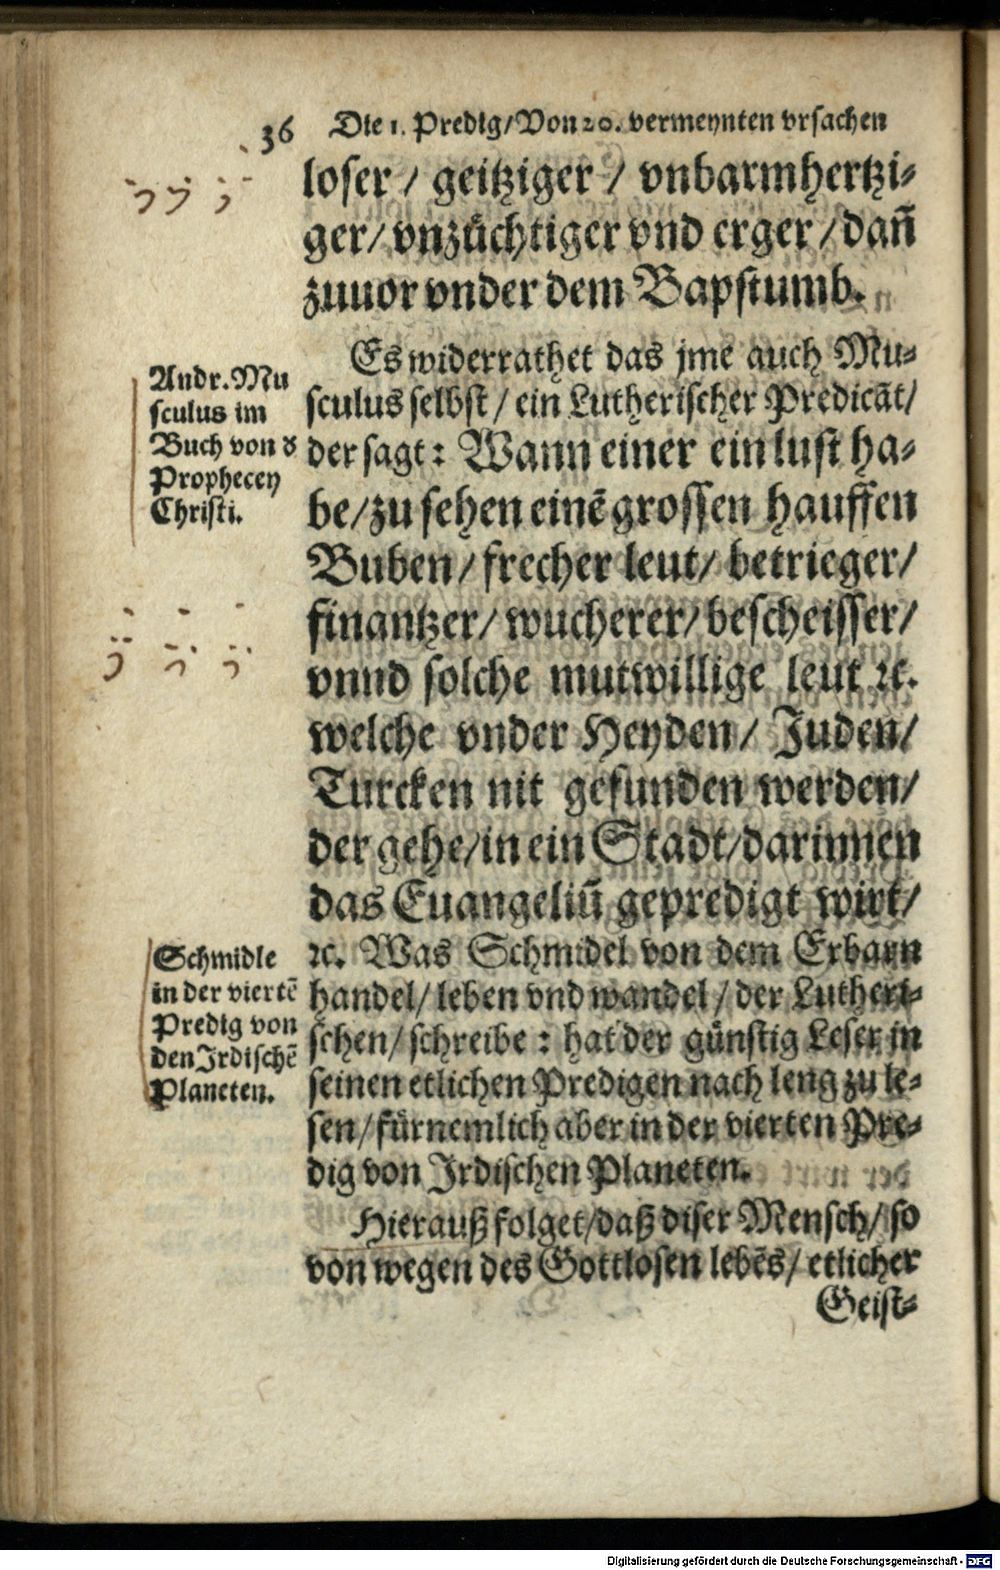 36 Die 1. Predig/Von 20. vermeynten vrsachen
loser / geitziger / vnbarmhertzi⸗
ger/ vnzüchtiger vnd erger / dañ
zuuor vnder dem Bapstumb.
Es widerrathet das jme auch Mu⸗
sculus selbst / ein Lutherischer Predicãt/
der sagt: Wann einer ein lust ha⸗
be/zu sehen einẽ grossen hauffen
Buben/ frecher leut/ betrieger/
finantzer/ wucherer/ bescheisser/
vnnd solche mutwillige leut ꝛc.
welche vnder Heyden/ Juden/
Turcken nit gefunden werden/
der gehe/in ein Stadt/darinnen
das Euangeliũ gepredigt wirt/
ꝛc. Was Schmidel von dem Erbarn
handel/ leben vnd wandel / der Lutheri⸗
schen/ schreibe : hat der günstig Leser in
seinen etlichen Predigen nach leng zu le⸗
sen/ fürnemlich aber in der vierten Pre⸗
dig von Irdischen Planeten.
Hierauß folget/daß diser Mensch/ so
von wegen des Gottlosen lebẽs/ etlicher
Geist⸗
Andr. Mu
sculus im
Buch von d̕
Prophecey
Christi.
Schmidle
in der viertẽ
Predig von
den Irdischẽ
Planeten.
Digitalisierung gefördert durch die Deutsche Forschungsgemeinschaft - DFG